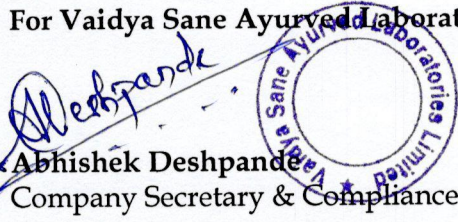 For Vaidya Sane Ayurved Laborat
ADeshpande
Vaidya Sane Ayurved Laboratories Limited ★
Abhishek Deshpande
Company Secretary & Compliance